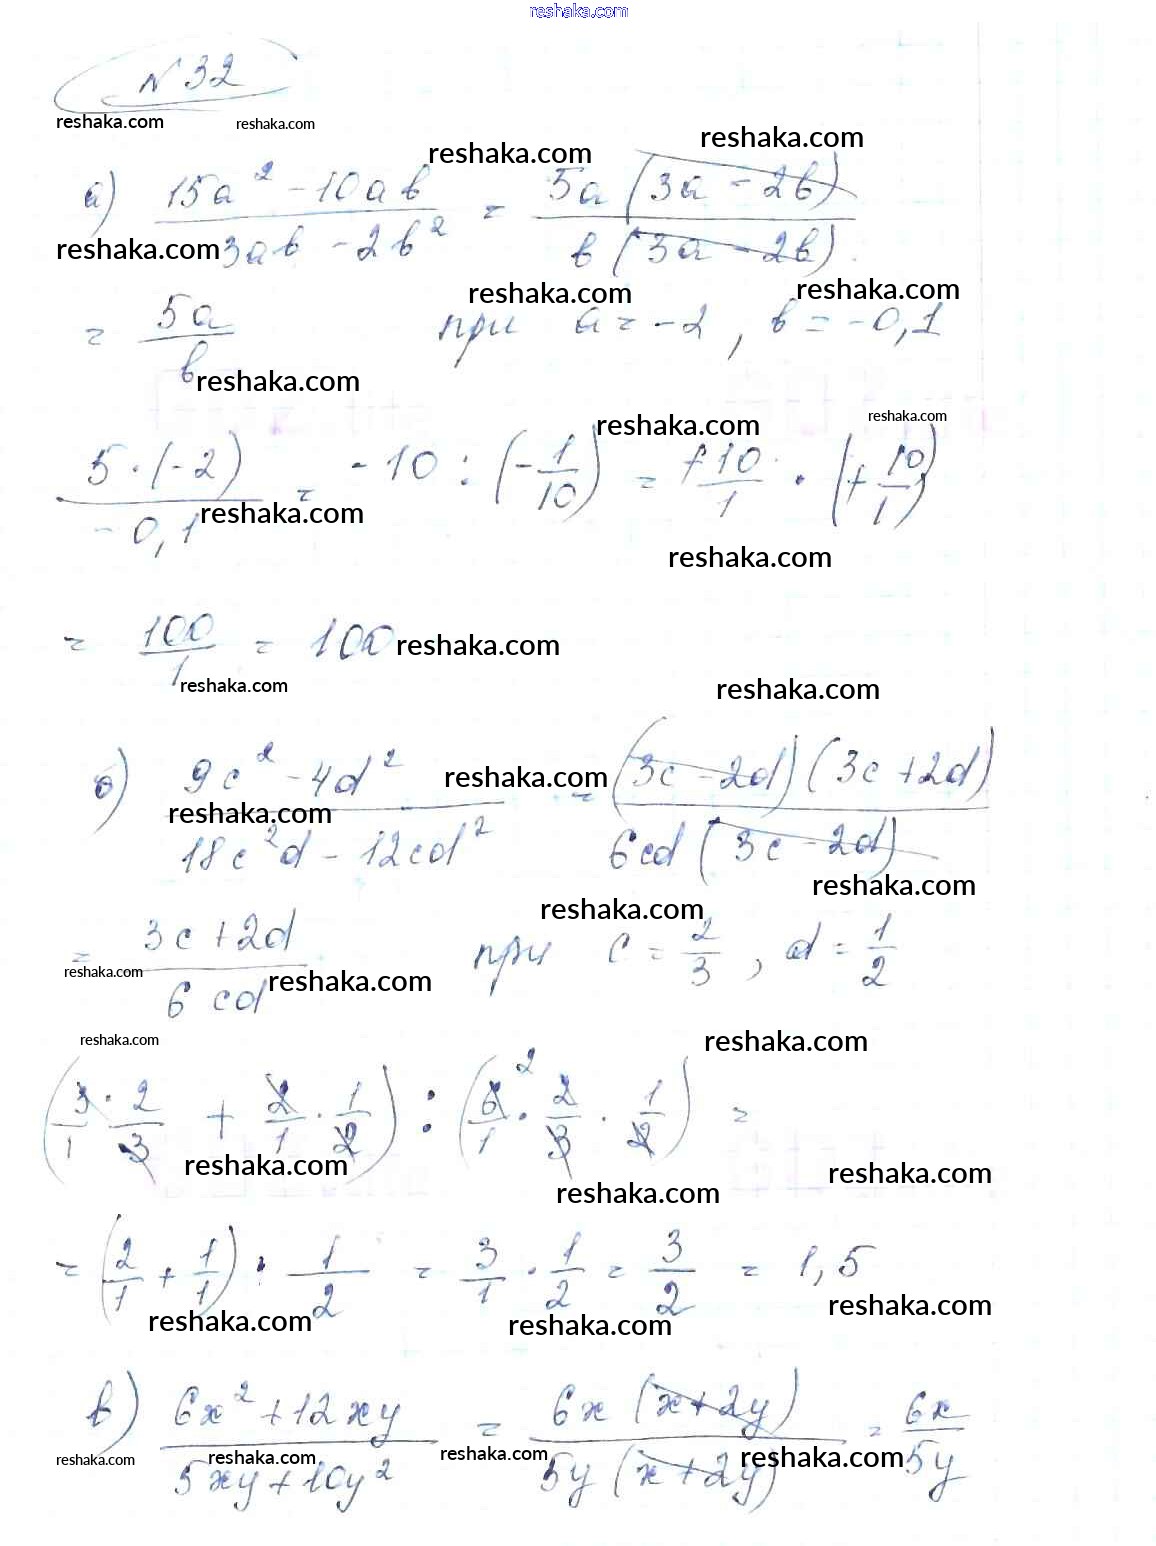 reshaka.com
№ 32
reshaka.com reshaka.com
reshaka.com reshaka.com
а) (15a² - 10ab)/(3ab - 2b²) = (5a(3a - 2b))/(b(3a - 2b))
reshaka.com
reshaka.com reshaka.com
= 5a/b при a = -2, b = -0,1
reshaka.com
reshaka.com reshaka.com
(5 · (-2))/(-0,1) = -10 : (-1/10) = +10/1 · (+10/1)
reshaka.com
reshaka.com
= 100/1 = 100 reshaka.com
reshaka.com reshaka.com
б) (9c² - 4d²)/(18c²d - 12cd²) = ((3c - 2d)(3c + 2d))/(6cd(3c - 2d))
reshaka.com reshaka.com
reshaka.com
reshaka.com
= (3c + 2d)/(6cd) при c = 2/3, d = 1/2
reshaka.com reshaka.com
reshaka.com reshaka.com
(3/1 · 2/3 + 2/1 · 1/2) : (6/1 ² · 2/3 · 1/2) =
reshaka.com reshaka.com reshaka.com
= (2/1 + 1/1) · 1/2 = 3/1 · 1/2 = 3/2 = 1,5
reshaka.com reshaka.com reshaka.com
в) (6x² + 12xy)/(5xy + 10y²) = (6x(x + 2y))/(5y(x + 2y)) = 6x/5y
reshaka.com reshaka.com reshaka.com reshaka.com